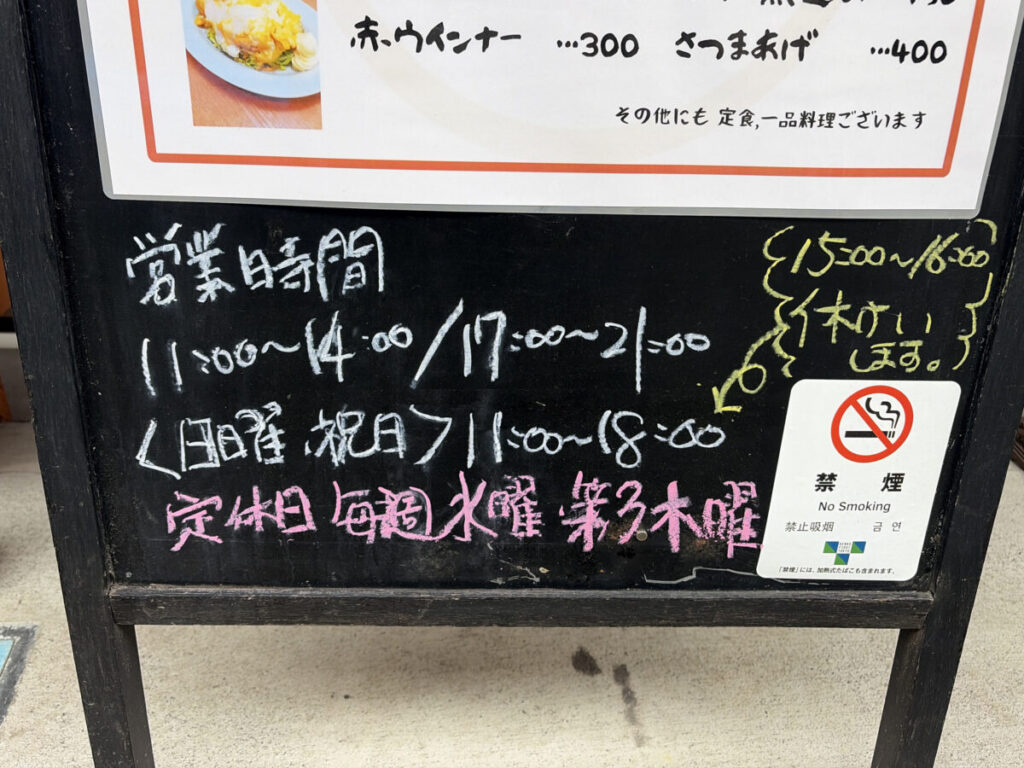 赤ウインナー …300 さつまあげ …400
その他にも 定食,一品料理ございます
営業時間
11:00～14:00/17:00～21:00
〈日曜、祝日〉11:00～18:00
15:00～16:00
休けい
します。
定休日 毎週水曜 第3木曜
禁煙
No Smoking
禁止吸烟 금연
「禁煙」には、加熱式たばこも含まれます。